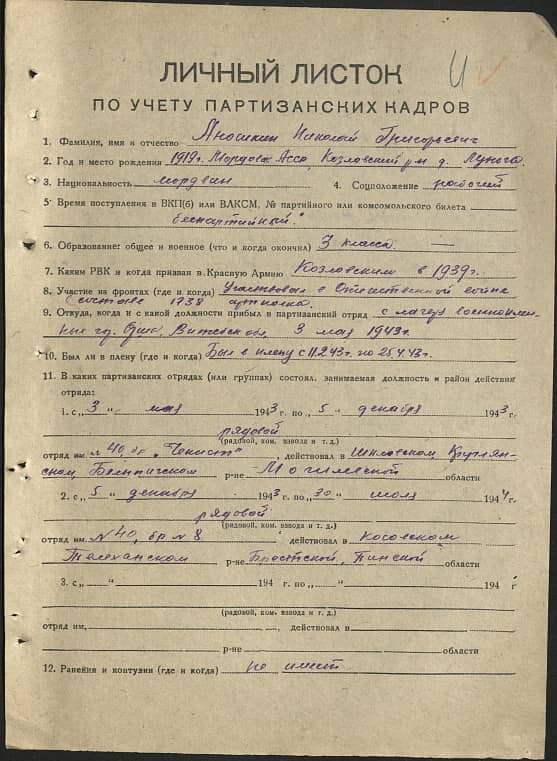 ЛИЧНЫЙ ЛИСТОК
ПО УЧЕТУ ПАРТИЗАНСКИХ КАДРОВ
1. Фамилия, имя и отчество Яношкин Николай Григорьевич
2. Год и место рождения 1919 г. Мордовск. Асср, Козловский р-н д.
3. Национальность мордвин 4. Соцположение рабочий
5. Время поступления в ВКП(б) или ВЛКСМ, № партийного или комсомольского билета
беспартийный
6. Образование: общее и военное (что и когда окончил) 3 класса. —
7. Каким РВК и когда призван в Красную Армию Козловским в 1939 г.
8. Участие на фронтах (где и когда) Участвовал в Отечественной войне
в составе 1738 артполка.
9. Откуда, когда и с какой должности прибыл в партизанский отряд с лагеря военноплен-
ных Витебской 3 мая 1943 г.
10. Был ли в плену (где и когда) Был в плену с 11.2.43 г. по 25.4.43 г.
11. В каких партизанских отрядах (или группах) состоял, занимаемая должность и район действия
отряда:
1. с „ 3 “ мая 1943 г. по „ 5 “ декабря 1943 г.
рядовой
(рядовой, ком. взвода и т. д.)
отряд им. № 40, бр. „Чекист“, действовал в Шкловском, Круглян-
ском, Белыничском р-не Могилевской области
2. с „ 5 “ декабря 1943 г. по „ 30 “ июля 1944 г.
рядовой
(рядовой, ком. взвода и т. д.)
отряд им. № 40, бр № 8 действовал в Косовском
Телеханском р-не Брестской, Пинской области
3. с „ “ 194 г. по „ “ 194 г
(рядовой, ком. взвода и т. д.)
отряд им. , действовал в
р-не области
12. Ранения и контузии (где и когда) не имеет